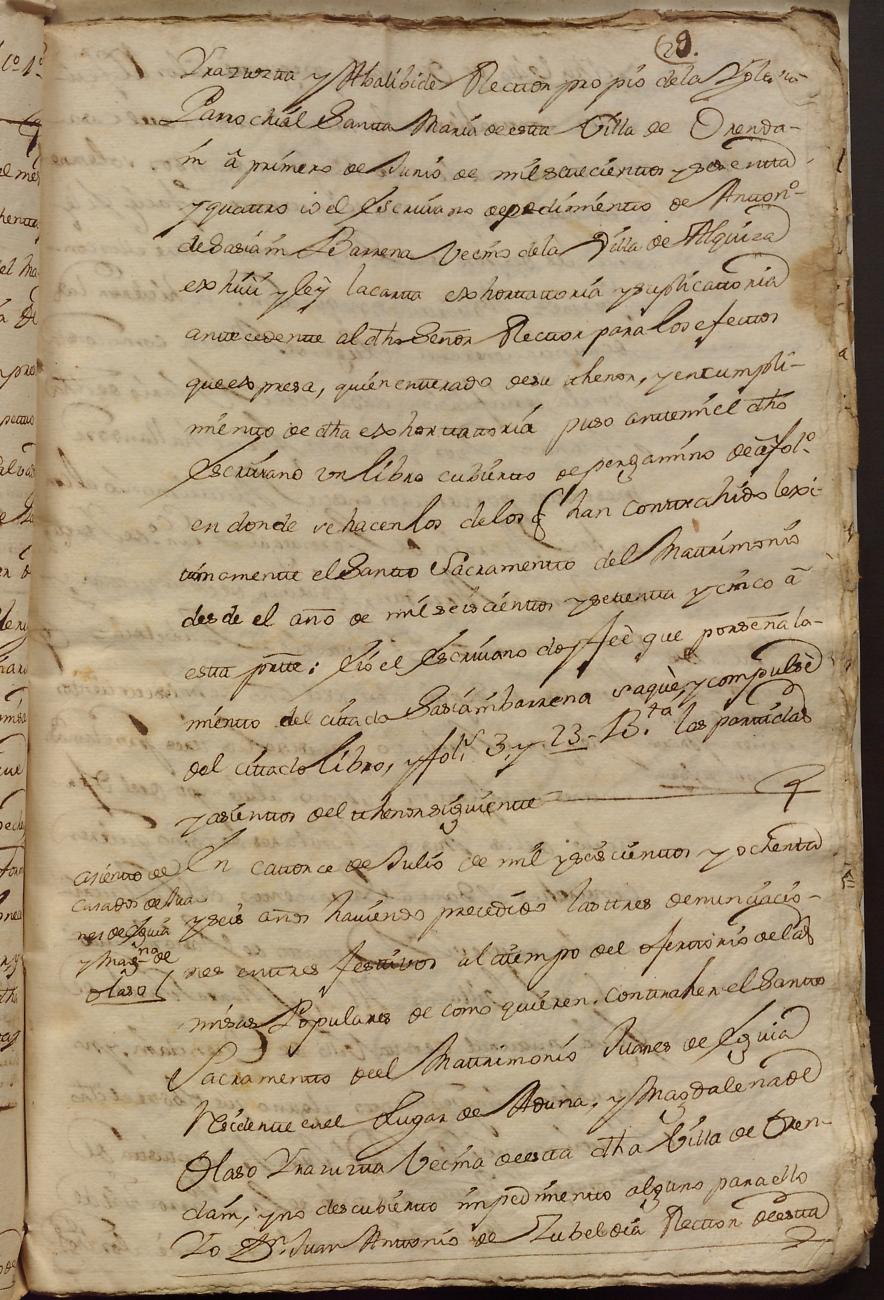 29.
Yrazuzta y Abalibide Rector propio de la Yglesia
Parrochial Santa Maria de esta Villa de Orenda-
in â primero de Junio de mil setecientos y sesenta
y quattro io el Escriuano de pedimiento de Anton.º
de Sasiàm Barrena Vecino de la Villa de Alquiza
exhiui y leÿ la carta exhortattoria y suplicattoria
antecedente al dho Señor Rector para los efectos
que expresa, quien enterado de su thenor, y en cumpli-
miento de dha exhorttatoria puso ante mi el dho
Escriuano vn libro cubierto de pergamino de â fol.º
en donde se hacen los de los q han contrahido lexi-
timamente el Santto Sacramento del Mattrimonio
desde el año de mil seiscientos y setenta y cinco â
esta prtte: Eio el Escriuano doy feè que por señala-
miento del cittado Sasiambarrena saquè, y compulsè
del cittado libro, y fol.s 3. y 23. B.ta las partidas
y asientos del thenor siguiente
asiento de
casados de Jua
nes de Eguia
y Mag.na de
Olaso
En catorce de Julio de mil y seiscientos y ochenta
y seis años hauiendo precedido las tres denunciacio-
nes en tres festiuos al tiempo del ofertorio de las
misas Populares de como quieren contraher el Santo
Sacramento del Mattrimonio Juanes de Eguia
Residente en el Lugar de Aduna, y Magdalena de
Olaso Yrazuzta Vecina de esta dha Villa de Oren-
dam, y no descubierto impedimento alguno para ello
Yo D.n Juan Anttonio de Zubeldia Rector de esta